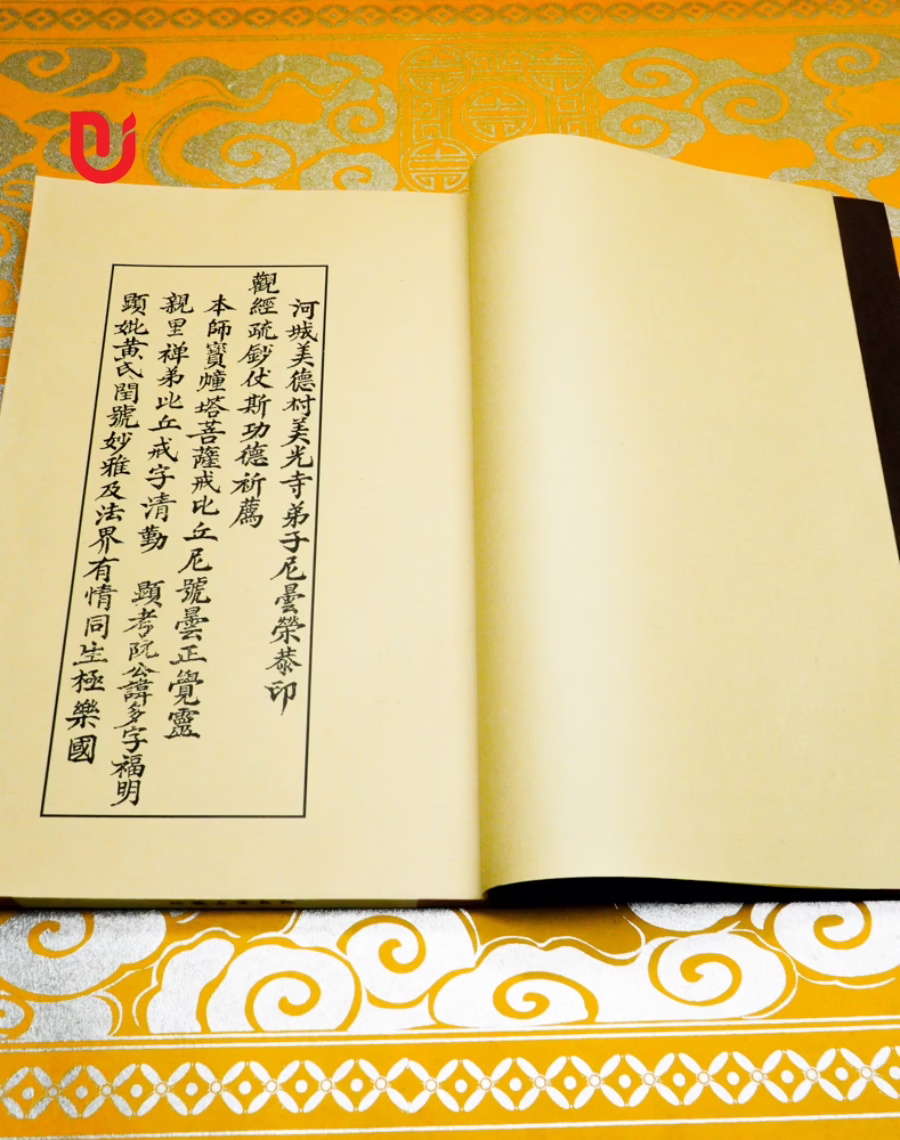 河城美德村美光寺弟子尼曇榮恭印
觀經疏鈔伏斯功德祈薦
本師寶幢塔菩薩戒比丘尼號曇正覺靈
親里禅弟比丘戒字清勤 顯考阮公諱多字福明
顯妣黃氏閏號妙雅及法界有情同生極樂國